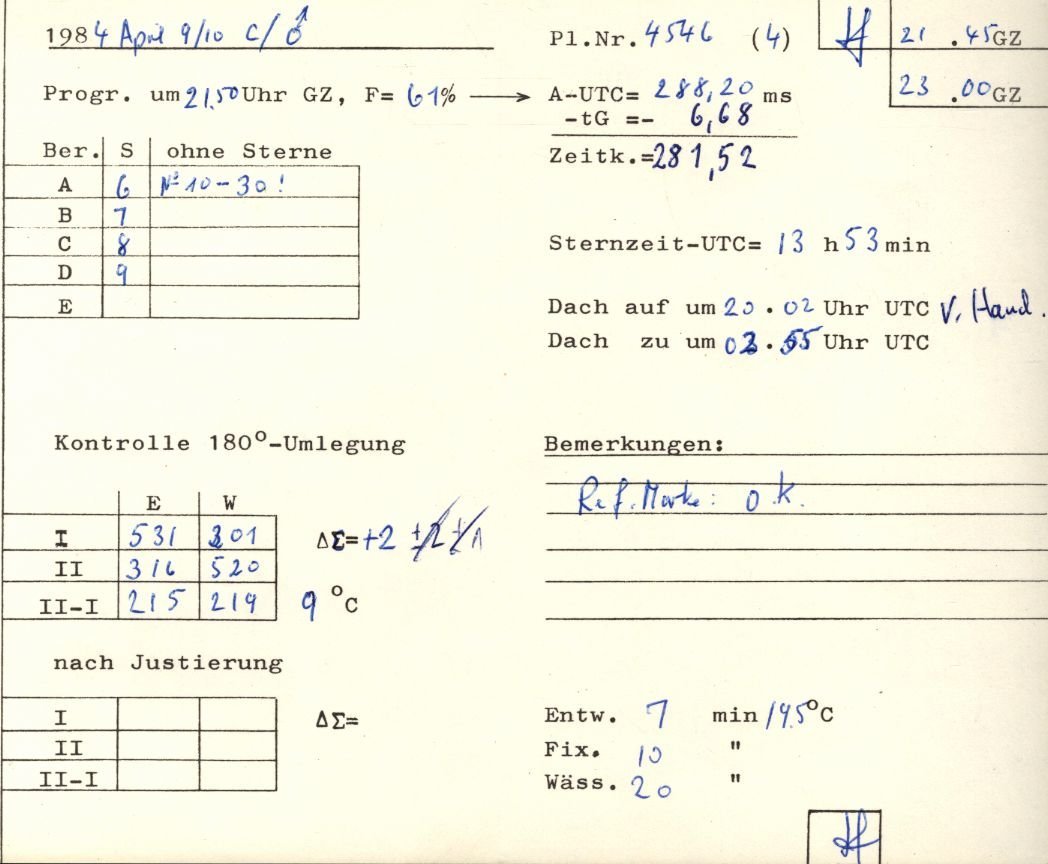 1984 April 9/10 C/♂ Pl.Nr. 4546 (4) 21.45 GZ
Progr. um 21,50 Uhr GZ, F= 61% → A-UTC= 288,20 ms 23.00 GZ
-tG =- 6,68
Ber. S ohne Sterne Zeitk.=281,52
A 6 Nº 10-30!
B 7
C 8 Sternzeit-UTC= 13 h 53 min
D 9
E Dach auf um 20.02 Uhr UTC v. Hand.
Dach zu um 03.55 Uhr UTC
Kontrolle 180°-Umlegung Bemerkungen:
E W Ref. Marke: o.k.
I 531 301 ΔΣ=+2
II 316 520
II-I 215 219 9 °C
nach Justierung
I ΔΣ= Entw. 7 min/19.5°C
II Fix. 10 "
II-I Wäss. 20 "